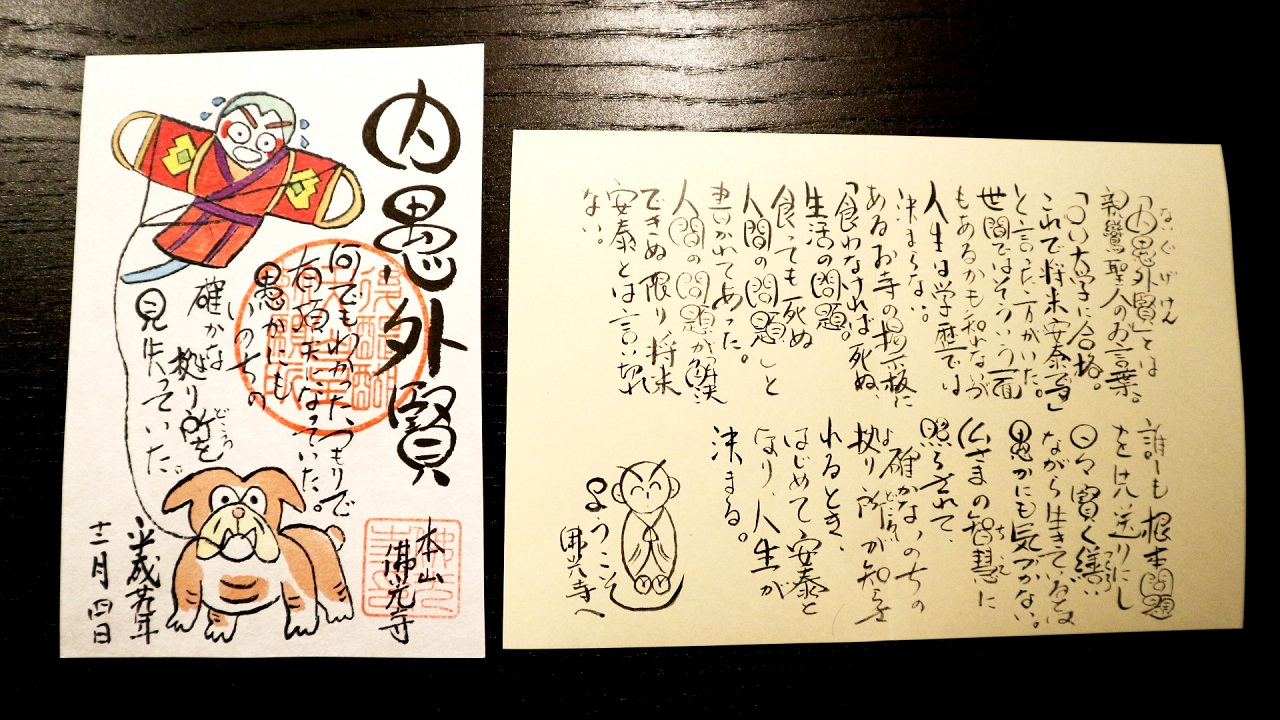 内愚外賢
何でもわかったつもりで
有頂天になっていた。
愚かにも
いのちの
確かな
拠り所を
よ
どころ
見失っていた。
本山
佛光寺
平成廿九年
十二月四日
ないぐげけん
「内愚外賢」とは
親鸞聖人のお言葉。
「〇〇大学に合格。
これで将来安泰です」
と言った方がいた。
世間ではそういう面
もあるかも知れないが
人生は学歴では
決まらない。
あるお寺の掲示板に
「食わなければ死ぬ、
生活の問題
食っても死ぬ
人間の問題」と
書かれてあった。
人間の問題が解決
できぬ限り、将来
安泰とは言い切れ
ない。
誰しも根本問題
を先送りにし
日々賢く繕い
つくろ
ながら生きているが
愚かにも気づかない。
仏さまの智慧に
ちえ
照らされて
確かないのちの
拠り所が知ら
よ
どころ
れるとき、
はじめて安泰と
なり、人生が
決まる。
ようこそ
佛光寺へ